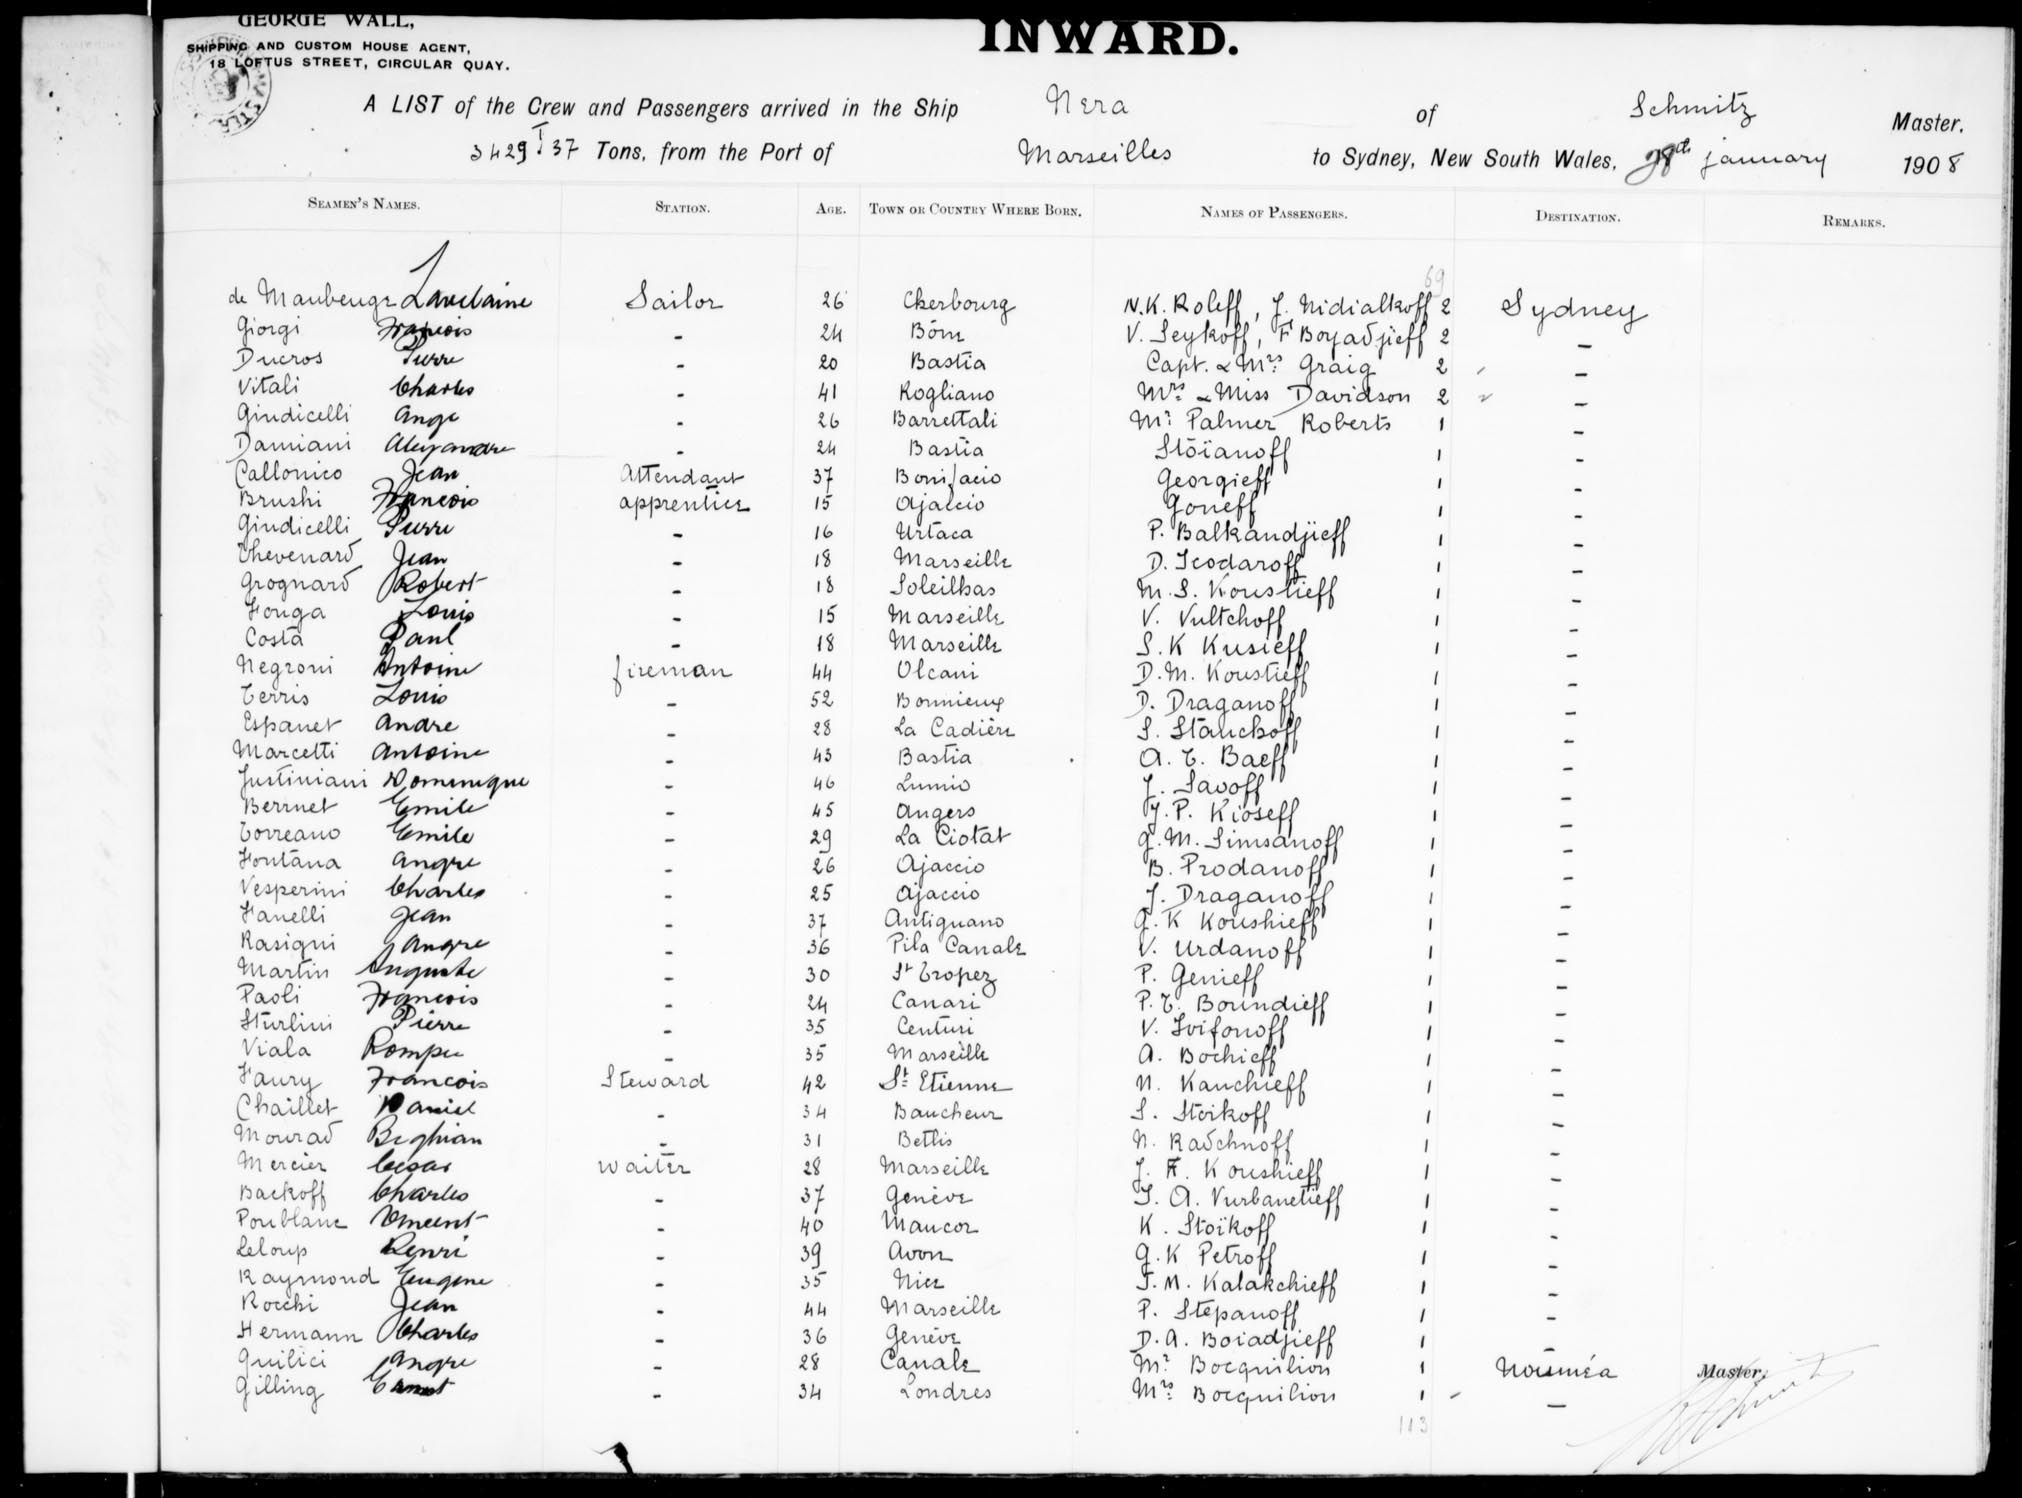 GEORGE WALL,
SHIPPING AND CUSTOM HOUSE AGENT,
18 LOFTUS STREET, CIRCULAR QUAY.
INWARD.
A LIST of the Crew and Passengers arrived in the Ship Nera of Schmitz Master.
3429 T 37 Tons, from the Port of Marseilles to Sydney, New South Wales, 28th january 1908
SEAMEN'S NAMES. STATION. AGE. TOWN OR COUNTRY WHERE BORN. NAMES OF PASSENGERS. DESTINATION. REMARKS.
69
de Maubeuge Sailor 26 Cherbourg N.K. Roleff, J. Nidialkoff 2 Sydney
Giorgi François - 24 Bône V. Seykoff, F Boyadjieff 2 -
Ducros Pierre - 20 Bastia Capt. & Mrs Graig 2 -
Vitali Charles - 41 Rogliano Mrs & Miss Davidson 2 -
Giudicelli Ange - 26 Barrettali Mr Palmer Roberts 1 -
Damiani Alexandre - 24 Bastia Stöianoff 1 -
Callonico Jean Attendant 37 Bonifacio Georgieff 1 -
Brushi François apprentice 15 Ajaccio Goneff 1 -
Giudicelli Pierre - 16 Urtaca P. Balkandjieff 1 -
Thevenard Jean - 18 Marseille D. Teodaroff 1 -
Grognard Robert - 18 Soleilhas M.S. Koustieff 1 -
Fouga Louis - 15 Marseille V. Vultchoff 1 -
Costa Paul - 18 Marseille S.K Kusieff 1 -
Negroni Antoine fireman 44 Olcani D.M. Koustieff 1 -
Terris Louis - 52 Bonnieux D. Draganoff 1 -
Espanet Andre - 28 La Cadière S. Stanchoff 1 -
Marcetti Antoine - 43 Bastia A. T. Baeff 1 -
Justiniani Dominique - 46 Lumio J. Savoff 1 -
Berrnet Emile - 45 Angers J.P. Kioseff 1 -
Torreano Emile - 29 La Ciotat G.M. Simsanoff 1 -
Fontana Angre - 26 Ajaccio B. Prodanoff 1 -
Vesperini Charles - 25 Ajaccio J. Draganoff 1 -
Fanelli Jean - 37 Antignano G.K Koushieff 1 -
Rasigni Angre - 36 Pila Canale V. Urdanoff 1 -
Martin Auguste - 30 St Tropez P. Genieff 1 -
Paoli François - 24 Canari P.T. Boundieff 1 -
Sturlini Pierre - 35 Centuri V. Trifonoff 1 -
Viala Pompee - 35 Marseille A. Bochieff 1 -
Faury François Steward 42 St Etienne N. Kanchieff 1 -
Chaillet Daniel - 34 Baucheur S. Stoikoff 1 -
Mourad Beghian - 31 Betlis N. Radchnoff 1 -
Mercier Cesar waiter 28 Marseille J. K. Koushieff 1 -
Backoff Charles - 37 Genève S. A. Vurbanetieff 1 -
Poublanc Vincent - 40 Maucor K. Stoïkoff 1 -
Leloup Henri - 39 Avon G.K Petroff 1 -
Raymond Eugene - 35 Nice T.M. Kalakchieff 1 -
Rocchi Jean - 44 Marseille P. Stepanoff 1 -
Hermann Charles - 36 Genève D.A. Boiadjieff 1 -
Quilici Angre - 28 Canale Mr Bocquilion 1 Nouméa Master.
Gilling Ernest - 34 Londres Mrs Bocquilion 1 -
113